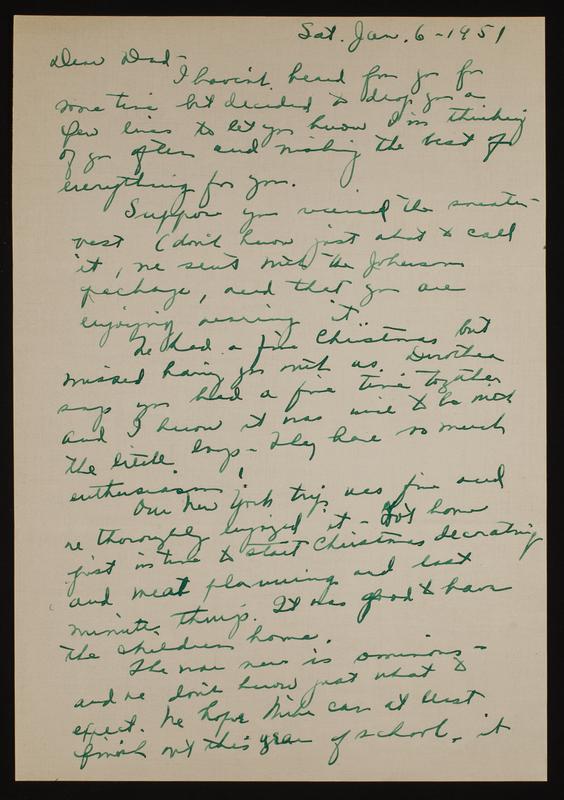 Sat. Jan. 6 - 1951
Dear Dad -
I haven't heard from you for
some time but decided to drop you a
few lines to let you know I'm thinking
of you often and wishing the best of
everything for you.
Suppose you received the sweater-
vest (don't know just what to call
it, we sent with the Johnson
package, and that you are
enjoying wearing it.
We had a fine Christmas but
missed having you with us. Dorothea
says you had a fine time together
and I know it was nice to be with
the little boys - They have so much
enthusiasm!
Our New York trip was fine and
we thoroughly enjoyed it - Got home
just in time to start Christmas decorating
and meal planning and last
minute things. It was good to have
the children home.
The war news is ominous -
and we don't know just what to
expect. We hope Mike can at least
finish out this year of school, it